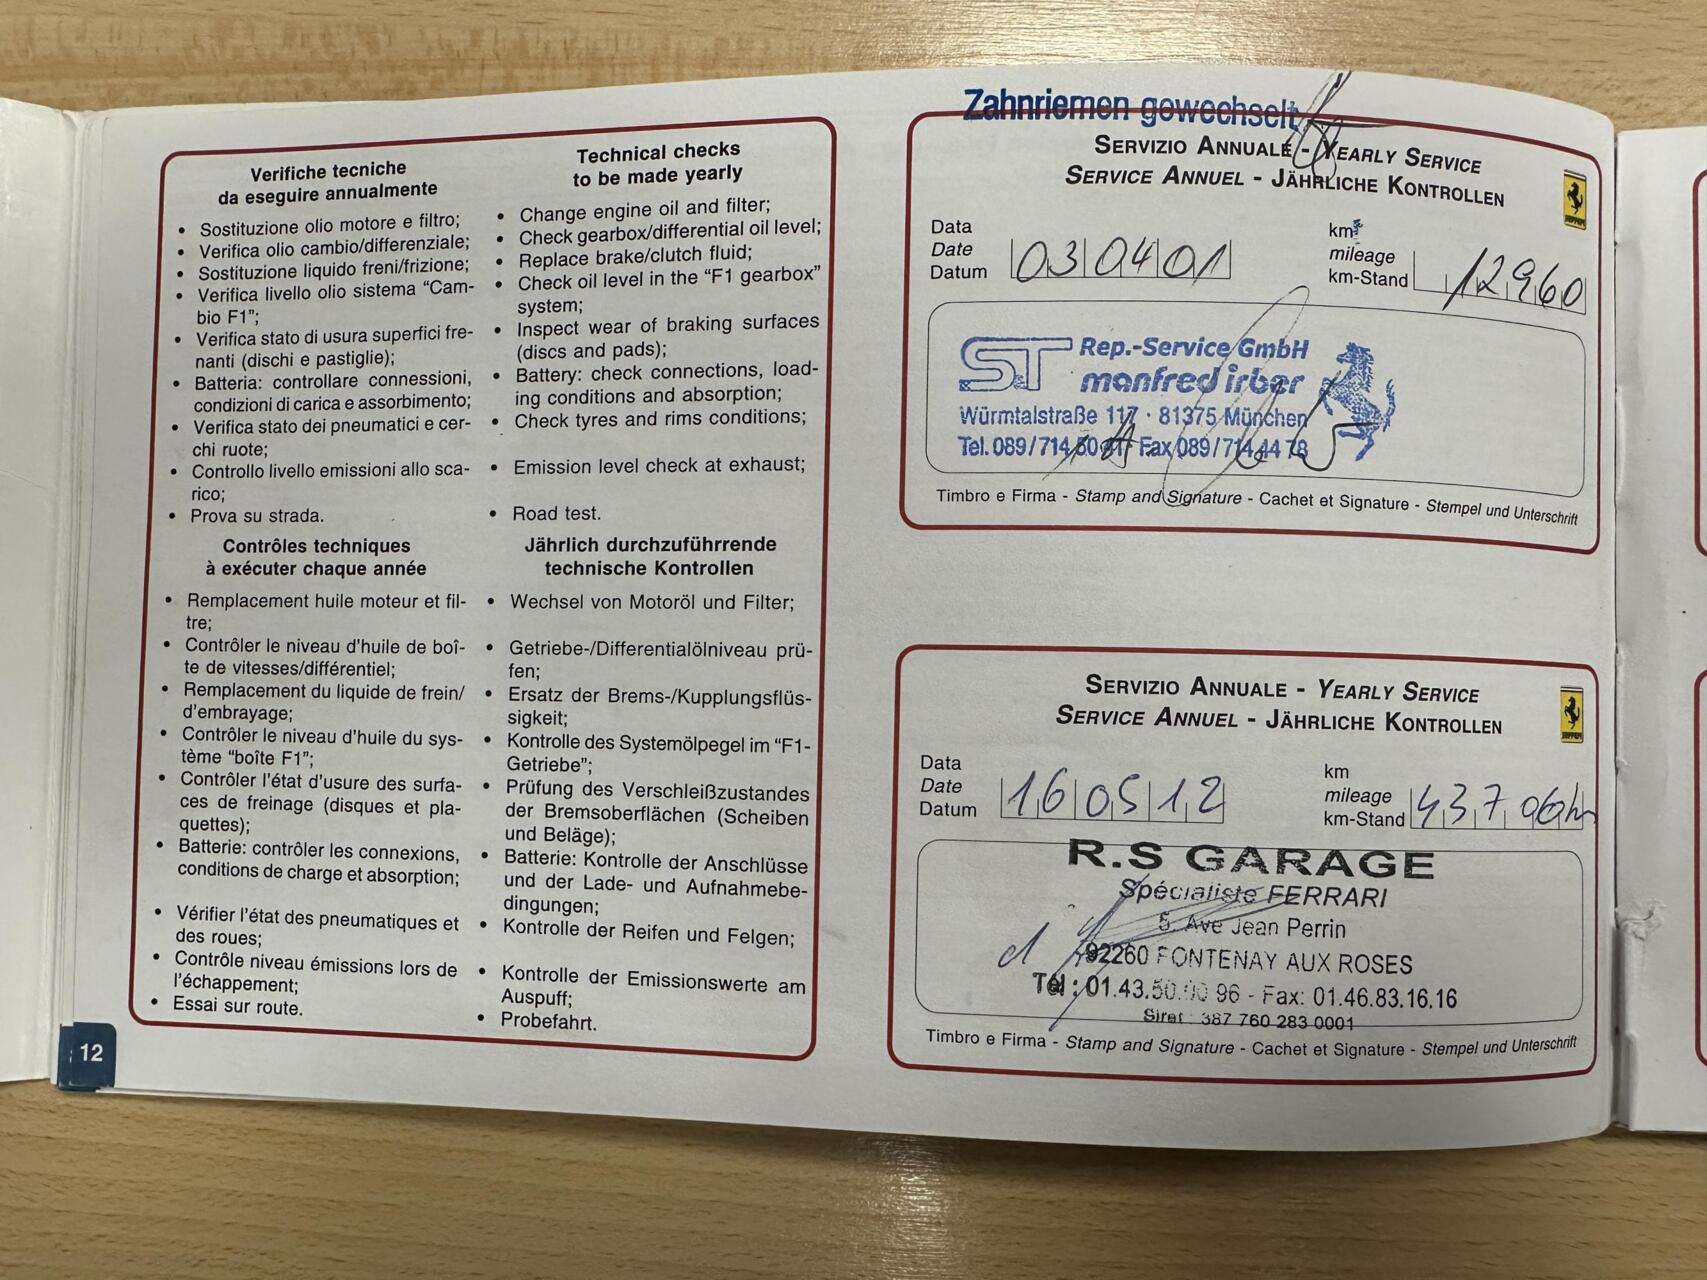 Verifiche tecniche
da eseguire annualmente
• Sostituzione olio motore e filtro;
• Verifica olio cambio/differenziale;
• Sostituzione liquido freni/frizione;
• Verifica livello olio sistema “Cam-
bio F1”;
• Verifica stato di usura superfici fre-
nanti (dischi e pastiglie);
• Batteria: controllare connessioni,
condizioni di carica e assorbimento;
• Verifica stato dei pneumatici e cer-
chi ruote;
• Controllo livello emissioni allo sca-
rico;
• Prova su strada.
Technical checks
to be made yearly
• Change engine oil and filter;
• Check gearbox/differential oil level;
• Replace brake/clutch fluid;
• Check oil level in the “F1 gearbox”
system;
• Inspect wear of braking surfaces
(discs and pads);
• Battery: check connections, load-
ing conditions and absorption;
• Check tyres and rims conditions;
• Emission level check at exhaust;
• Road test.
Contrôles techniques
à exécuter chaque année
• Remplacement huile moteur et fil-
tre;
• Contrôler le niveau d'huile de boî-
te de vitesses/différentiel;
• Remplacement du liquide de frein/
d'embrayage;
• Contrôler le niveau d'huile du sys-
tème “boîte F1”;
• Contrôler l'état d'usure des surfa-
ces de freinage (disques et pla-
quettes);
• Batterie: contrôler les connexions,
conditions de charge et absorption;
• Vérifier l'état des pneumatiques et
des roues;
• Contrôle niveau émissions lors de
l'échappement;
• Essai sur route.
Jährlich durchzuführrende
technische Kontrollen
• Wechsel von Motoröl und Filter;
• Getriebe-/Differentialölniveau prü-
fen;
• Ersatz der Brems-/Kupplungsflüs-
sigkeit;
• Kontrolle des Systemölpegel im “F1-
Getriebe”;
• Prüfung des Verschleißzustandes
der Bremsoberflächen (Scheiben
und Beläge);
• Batterie: Kontrolle der Anschlüsse
und der Lade- und Aufnahmebe-
dingungen;
• Kontrolle der Reifen und Felgen;
• Kontrolle der Emissionswerte am
Auspuff;
• Probefahrt.
12
Zahnriemen gewechselt
SERVIZIO ANNUALE - YEARLY SERVICE
SERVICE ANNUEL - JÄHRLICHE KONTROLLEN
Ferrari
Data
Date
Datum
030401
km
mileage
km-Stand
12960
ST Rep.-Service GmbH
manfred irber
Würmtalstraße 117 · 81375 München
Tel. 089/714 Fax 089/714 44 78
Timbro e Firma - Stamp and Signature - Cachet et Signature - Stempel und Unterschrift
SERVIZIO ANNUALE - YEARLY SERVICE
SERVICE ANNUEL - JÄHRLICHE KONTROLLEN
Ferrari
Data
Date
Datum
160512
km
mileage
km-Stand
43706
R.S GARAGE
Spécialiste FERRARI
5, Ave Jean Perrin
92260 FONTENAY AUX ROSES
Tél : 01.43.50. 96 - Fax: 01.46.83.16.16
Siret : 387 760 283 0001
Timbro e Firma - Stamp and Signature - Cachet et Signature - Stempel und Unterschrift